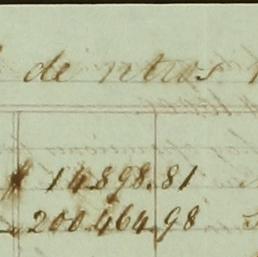 de ntros
$ 14.898.81
200.464.98